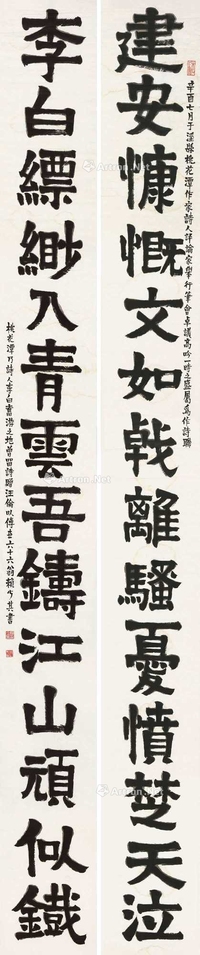 建安慷慨文如戟離騷憂憤楚天泣
辛酉七月于涇縣桃花潭作家詩人評論家舉行筆會卓議高吟一時之盛屬為作詩聯
李白縹緲入青雲吾鑄江山頑似鐵
桃花潭乃詩人李白舊游之地曾留詩贈汪倫以傳六十六翁賴少其書